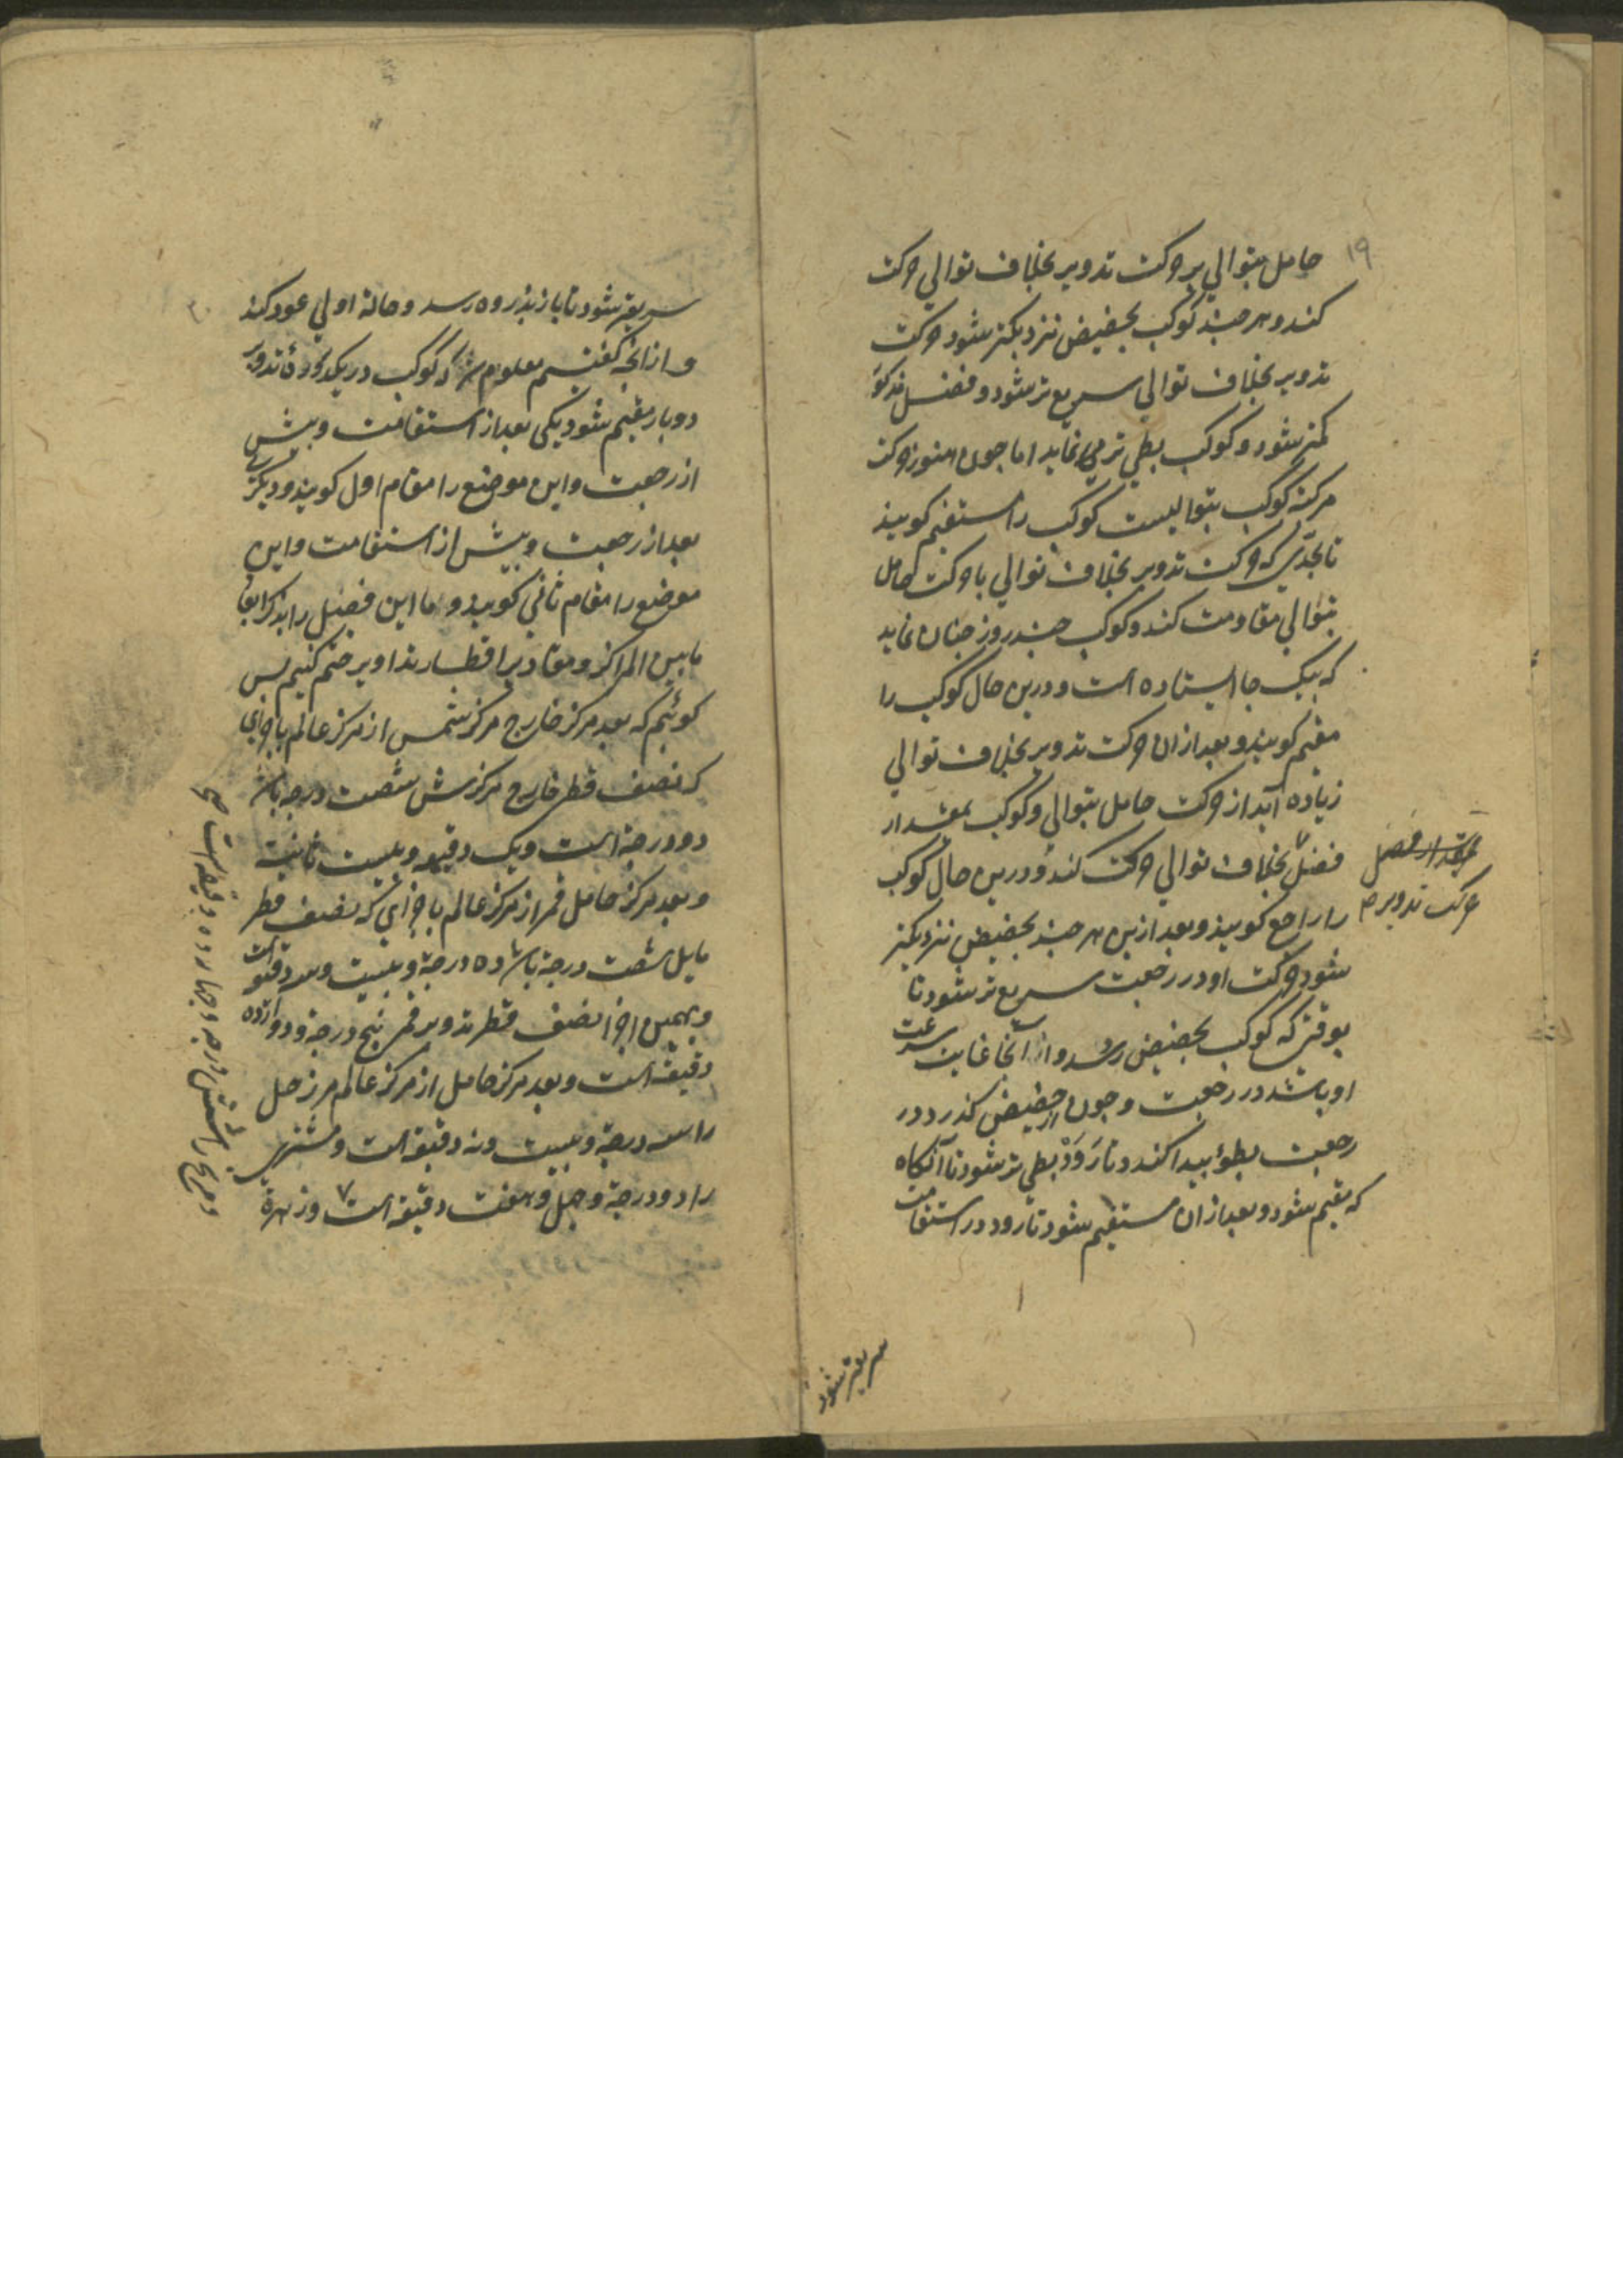 ۱۹
حامل بتوالي بر حرکت تدویر بخلاف توالي حرکت
کند و هر جند کوکب بحضیض نزدیکتر شود حرکت
تدویر بخلاف توالي سریع تر شود و فضل مذکور
کمتر شود و کوکب بطي تر مي نماید اما جون هنوز حرکت
مرکز کوکب بتوالیست کوکب را مستقیم کویند
تا بحدّي که حرکت تدویر بخلاف توالي با حرکت حامل
بتوالي مقاومت کند و کوکب جند روز جنان نماید
که بیک جا ایستاده است و درین حال کوکب را
مقیم کویند و بعد از ان حرکت تدویر بخلاف توالي
زیاده آید از حرکت حامل بتوالي و کوکب بمقدار
فضل بخلاف توالي حرکت کند و درین حال کوکب
را راجع کویند و بعد ازین هر جند بحضیض نزدیکتر
شود حرکت او در رجعت سریع تر شود تا
بوقتي که کوکب بحضیض رسد و از آنجا غایت سرعت
او باشد در رجعت و جون از حضیض کذرد در
رجعت بطوٴ پیدا کند و تا رَوَدْ بطي تر شود تا آنکاه
که مقیم شود و بعد از ان مستقیم شود تا رود در استقامت
بمقدار فضل
حرکت تدویر
سریعتر شود
۲۰
سریعتر شود تا باز بذروه رسد و حالة اولي عود کند
و از انچه کفتیم معلوم شد که کوکب در یکدوره تدویر
دو بار مقیم شود یکي بعد از استقامت و بیش
از رجعت و این موضع را مقام اول کویند و دیکر
بعد از رجعت و بیش از استقامت و این
موضع را مقام ثاني کویند و ما این فصل را بذکر ابعاد
ما بین المراکز و مقادیر اقطار تداویر ختم کنیم بس
کوئیم که بعد مرکز خارج مرکز شمس از مرکز عالم باجزاي
که نصف قطر خارج مرکزش شصت درجه باشد
دو درجة است و یک دقیقه و بیست ثانیت
و بعد مرکز حامل قمر از مرکز عالم باجزائي که نصف قطر
مایل شصت درجة باشد ده درجة و بیست و سه دقیقه است
و بهمین اجزا نصف قطر تدویر قمر پنج درجة و دوازده
دقیقه است و بعد مرکز حامل از مرکز عالم مر زحل
را سه درجة و بیست و نه دقیقه است و مشتري
را دو درجة و جهل و هفت دقیقه است و زهرة
و مریخ را شش درجه و دقیقه است صح